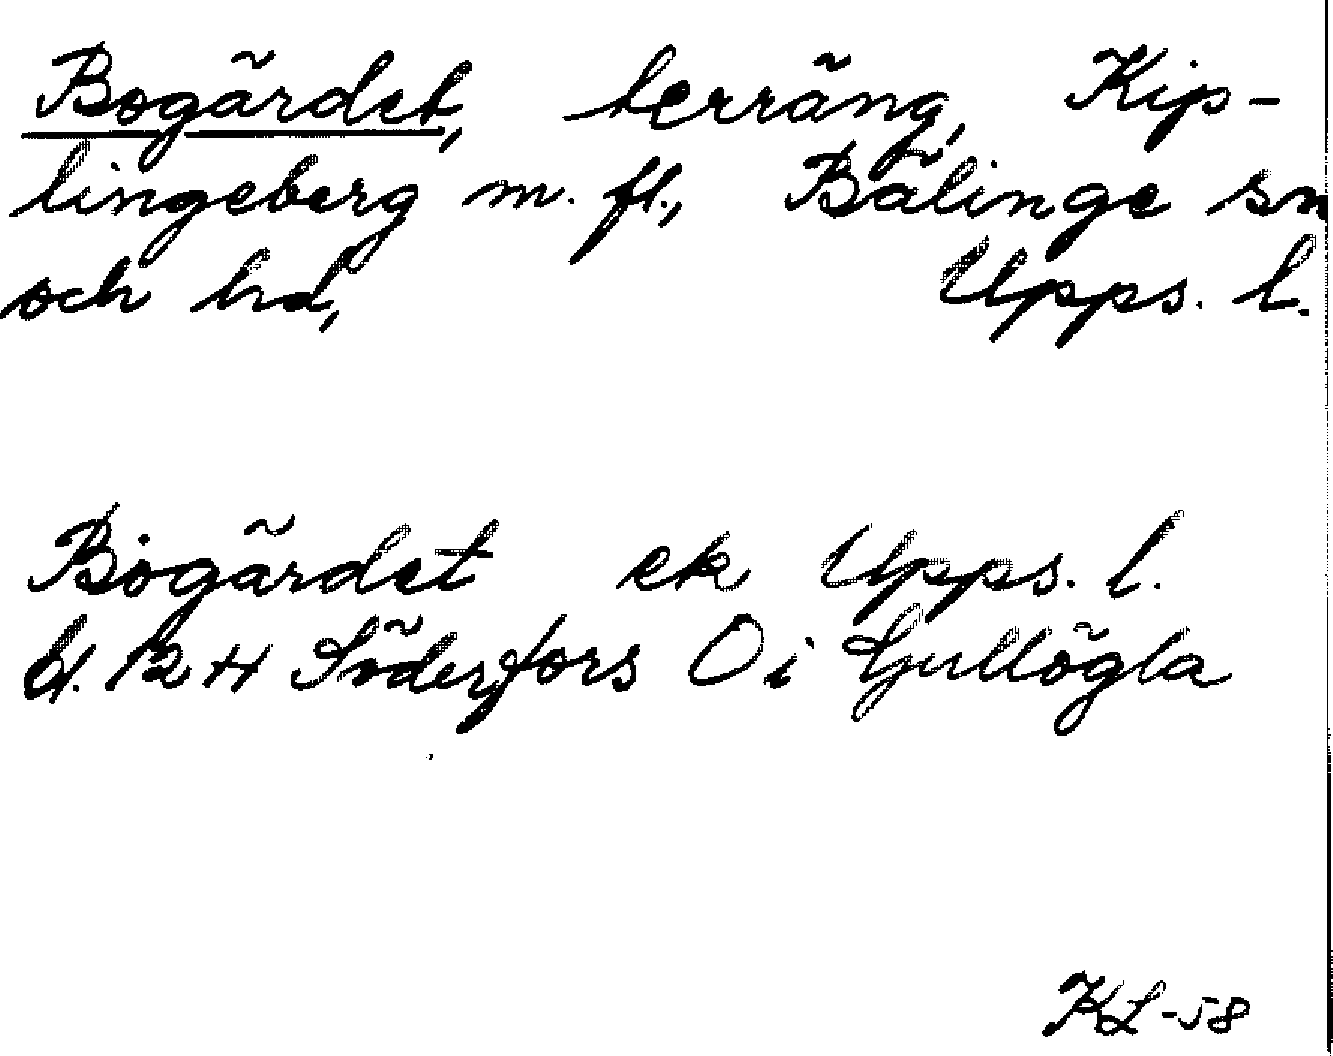 Bogärdet, terräng, Kip-
lingeberg m. fl., Bälinge sn
och hd, Upps. l.
Bogärdet ek Upps. l.
bl. 12 H Söderfors Ö i Gullögla
KL-58